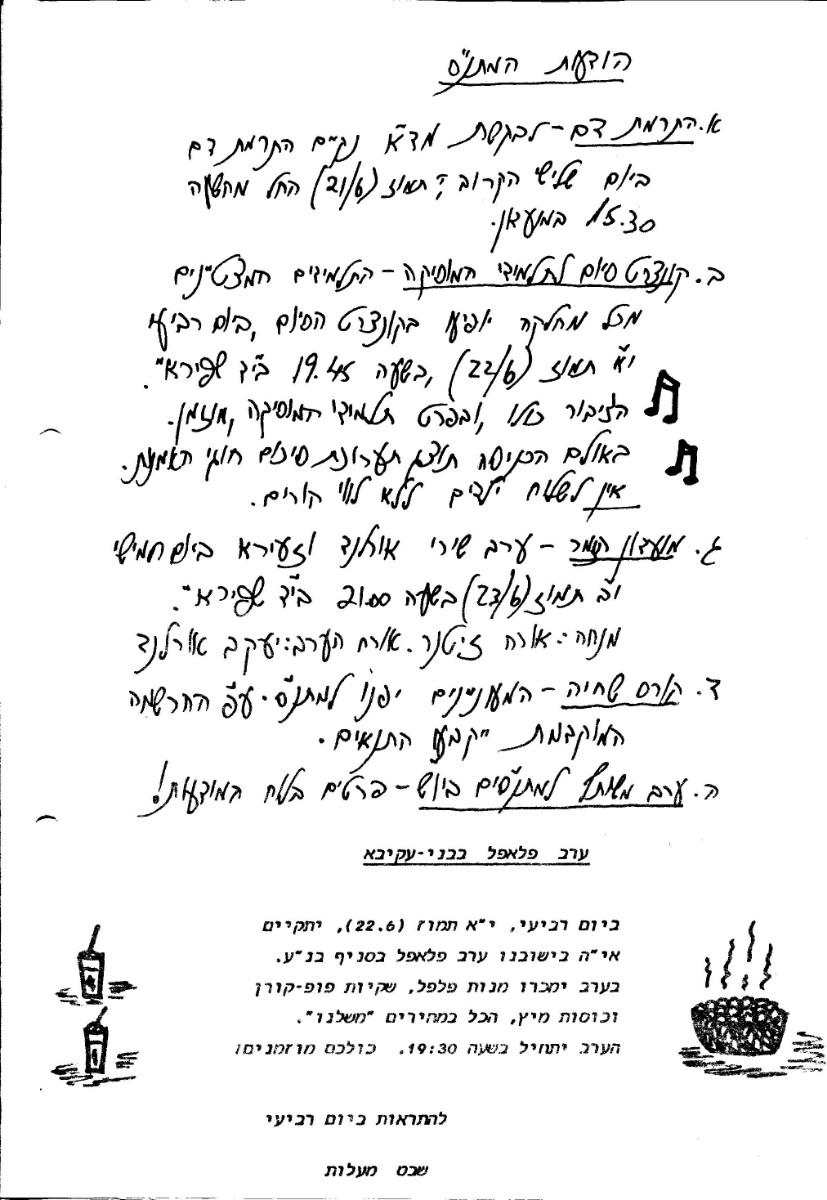 הודעות המתנ"ס
א. התרמת דם - לבקשת מד"א נקיים התרמת דם
ביום שלישי הקרוב י' תמוז (21/6) החל מהשעה
15.30 במועדון.
ב. קונצרט סיום לתלמידי המוסיקה - התלמידים המצטיינים
מכל מחלקה יופיעו בקונצרט הסיום, ביום רביעי
י"א תמוז (22/6), בשעה 19.45 ב"יד שפירא".
הציבור כולו, ובפרט תלמידי המוסיקה, מוזמן.
באולם הכניסה תוצג תערוכת סיכום חוגי האמנות.
אין לשלוח ילדים ללא לווי הורים.
ג. מועדון הזמר - ערב שירי אורלנד וזעירא ביום חמישי
י"ב תמוז (23/6) בשעה 21.00 ב"יד שפירא".
מנחה: אורח זיטנר. אורח הערב: יעקב אורלנד
ד. קורס שחיה - המעוניינים יפנו למתנ"ס. עפ"י ההרשמה
המוקדמת ייקבעו התנאים.
ה. ערב משותף למתנ"סים ביו"ש - פרטים בלוח המודעות!
ערב פלאפל בבני-עקיבא
ביום רביעי, י"א תמוז (22.6), יתקיים
אי"ה בישובנו ערב פלאפל בסניף בנ"ע.
בערב ימכרו מנות פלפל, שקיות פופ-קורן
וכוסות מיץ, הכל במחירים "משלנו".
הערב יתחיל בשעה 19:30. כולכם מוזמנים!
להתראות ביום רביעי
שבט מעלות